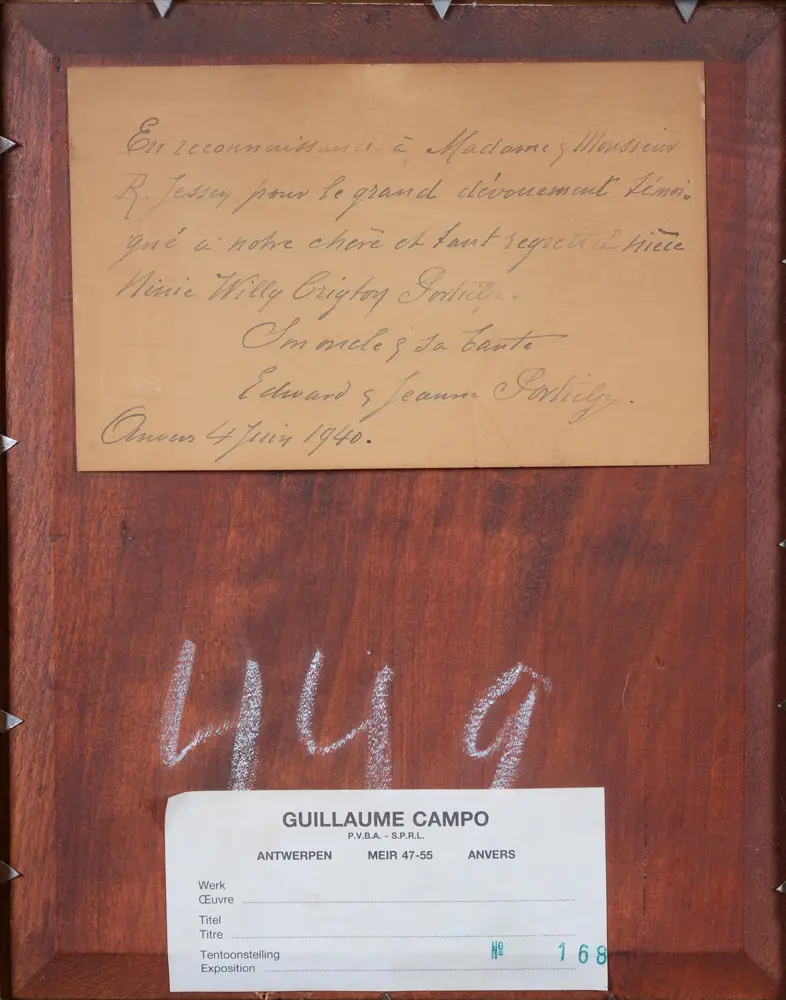 En reconnaissance à Madame & Monsieur
R. Jessey pour le grand dévouement témoi-
gné à notre chère et tant regrettée nièce
Ninie Willy Crigton
Son oncle & sa tante
Edward & Jeanne
Anvers 4 Juin 1940.
449
GUILLAUME CAMPO
P.V.B.A. - S.P.R.L.
ANTWERPEN MEIR 47-55 ANVERS
Werk
Œuvre
Titel
Titre
Tentoonstelling
Exposition
Nº 168